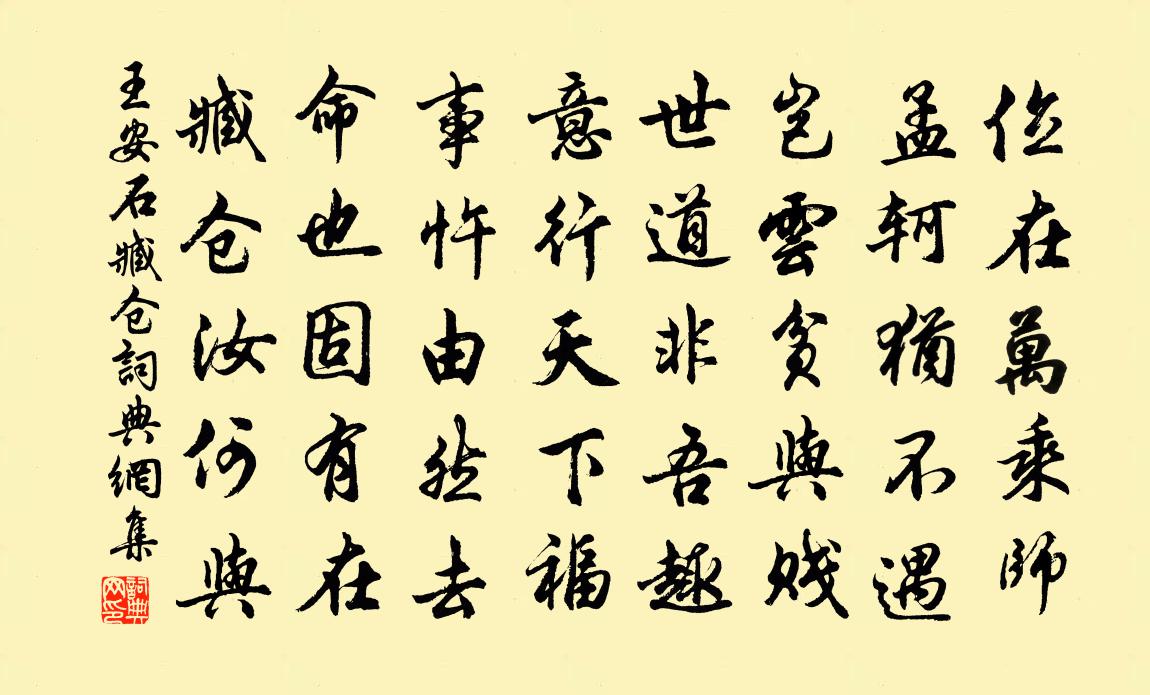 位在萬乘師
孟轲猶不遇
豈雲貧與賤
世道非吾趣
意行天下福
事忤由然去
命也固有在
臧仓汝何與
王安石臧仓詞典網集
詞典网印